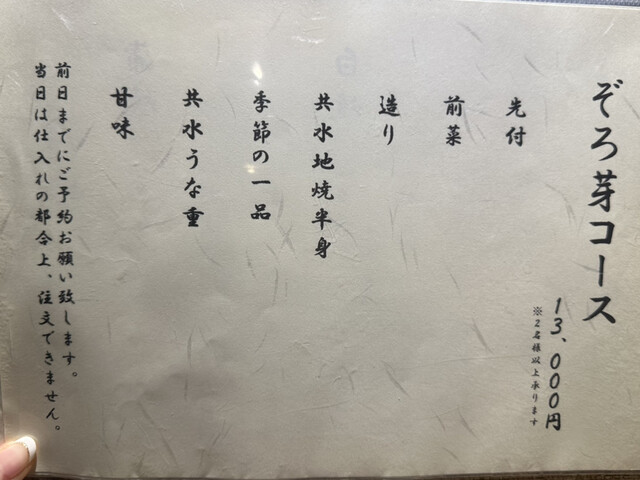 ぞろ芽コース
13、000円
※2名様以上承ります
先付
前菜
造り
共水地焼半身
季節の一品
共水うな重
甘味
前日までにご予約お願い致します。
当日は仕入れの都合上、注文できません。